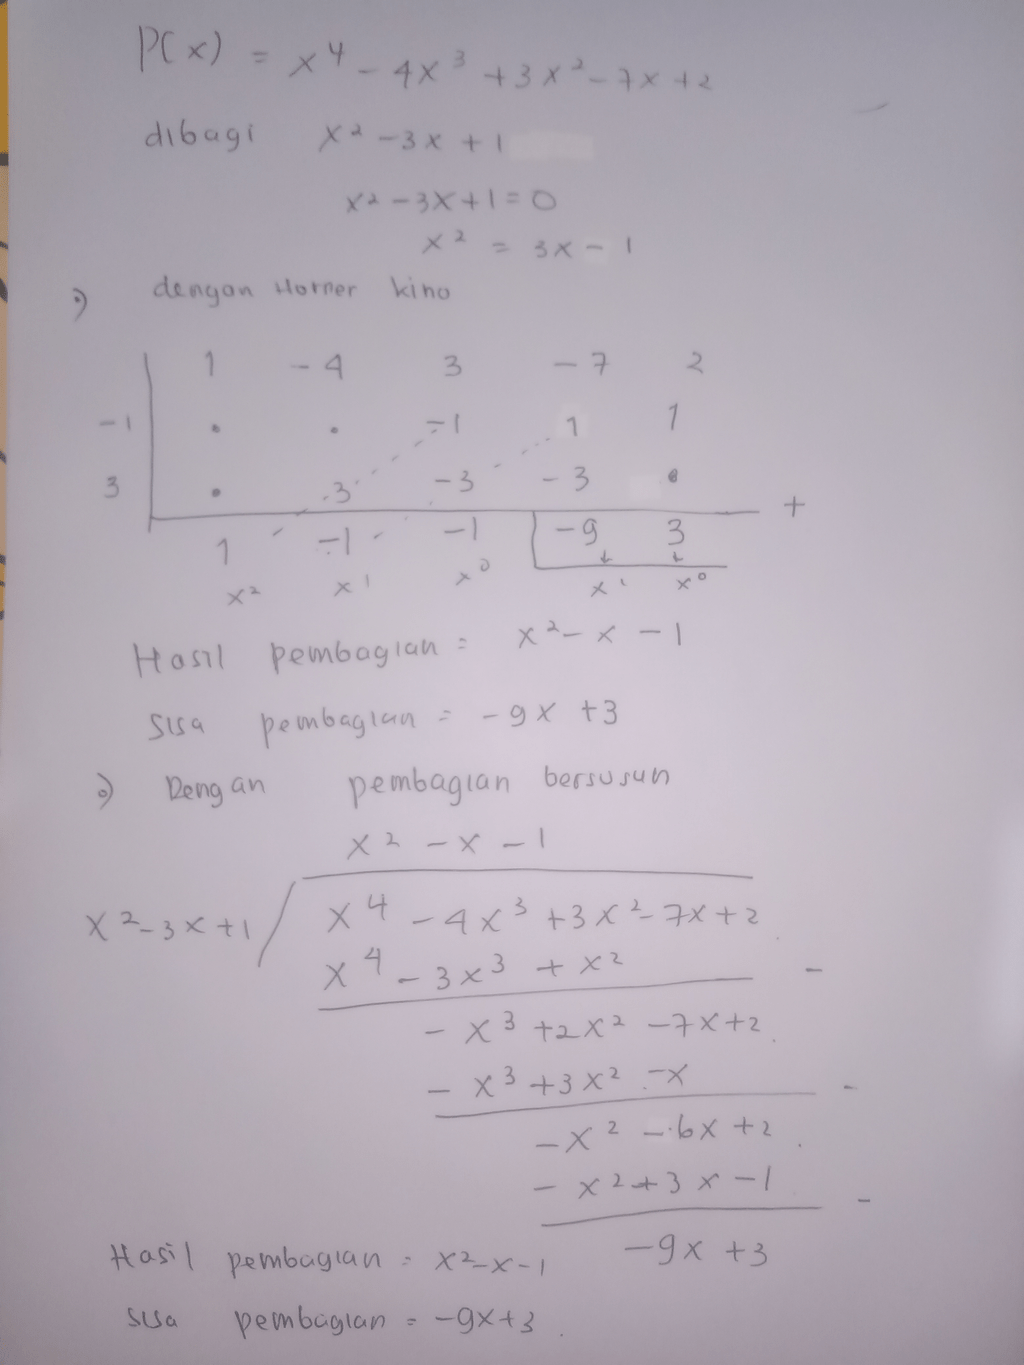 P(x) = x⁴ - 4x³ + 3x² - 7x + 2
dibagi x² - 3x + 1
x² - 3x + 1 = 0
x² = 3x - 1
•) dengan Horner kino
1 -4 3 -7 2
-1 • • -1 1 1
3 • 3 -3 -3 •
+
1 -1 -1 -9 3
x² x¹ x⁰ x¹ x⁰
Hasil pembagian = x² - x - 1
Sisa pembagian = -9x + 3
•) Dengan pembagian bersusun
x² - x - 1
x² - 3x + 1 / x⁴ - 4x³ + 3x² - 7x + 2
x⁴ - 3x³ + x² -
- x³ + 2x² - 7x + 2
- x³ + 3x² - x -
- x² - 6x + 2
- x² + 3x - 1 -
-9x + 3
Hasil pembagian = x² - x - 1
sisa pembagian = -9x + 3